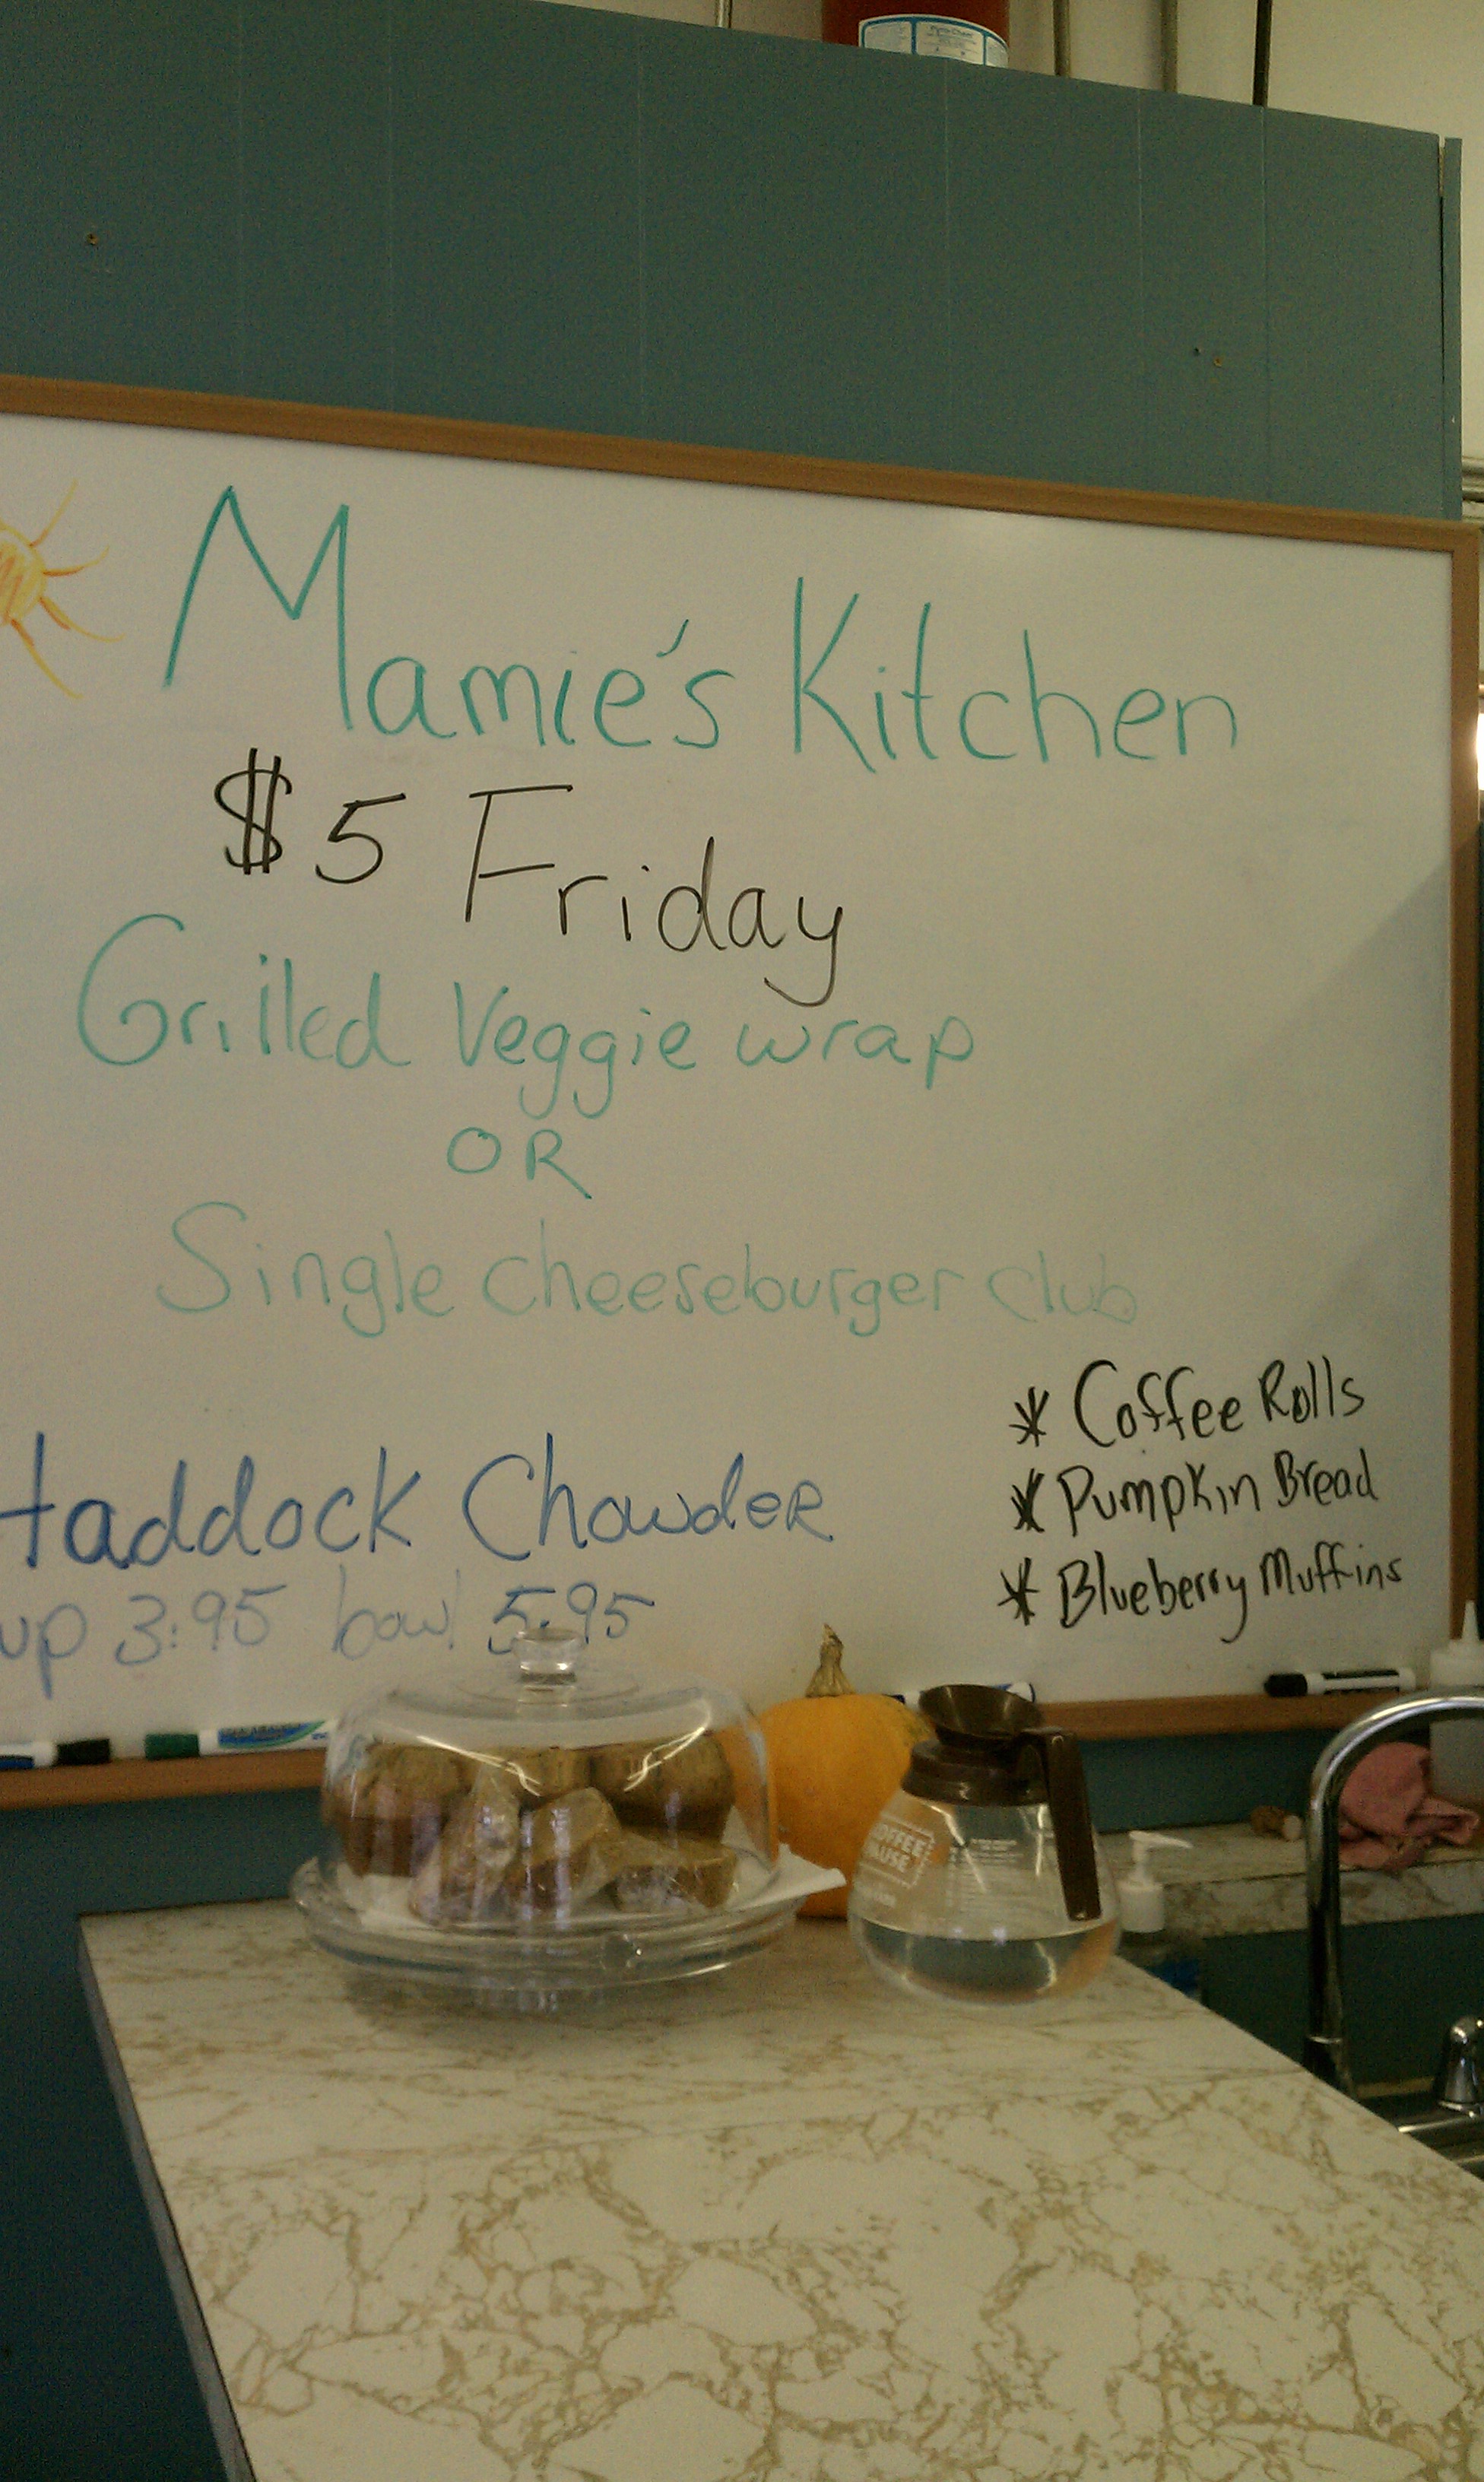 Mamie's Kitchen
$5 Friday
Grilled Veggie wrap
OR
Single cheeseburger club
Haddock Chowder
up 3.95 bowl 5.95
* Coffee Rolls
* Pumpkin Bread
* Blueberry Muffins